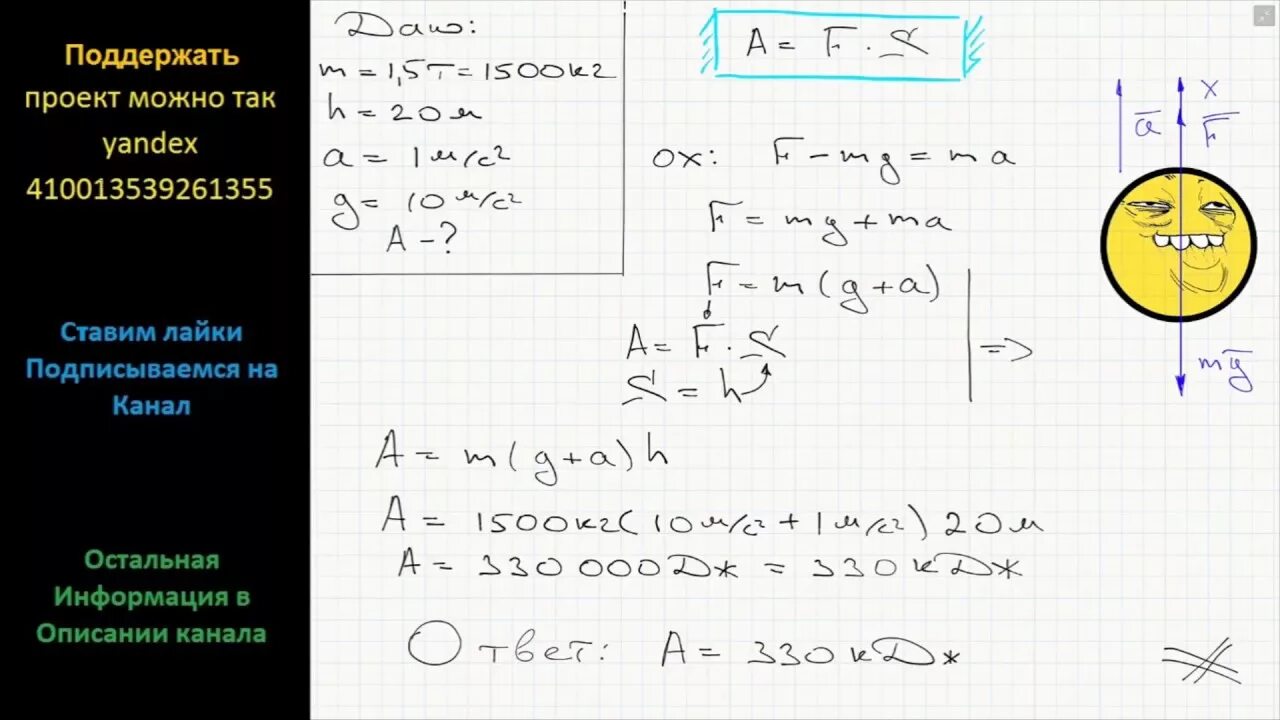 Поддержать
проект можно так
yandex
410013539261355
Ставим лайки
Подписываемся на
Канал
Остальная
Информация в
Описании канала
Дано:
m = 1,5т = 1500кг
h = 20м
a = 1м/с²
g = 10м/с²
A - ?
A = F · S
ox: F - mg = ma
F = mg + ma
F = m(g+a)
A = F · S
S = h
=>
A = m(g+a)h
A = 1500кг(10м/с² + 1м/с²)20м
A = 330 000Дж = 330кДж
Ответ: A = 330кДж
a
x
F
mg